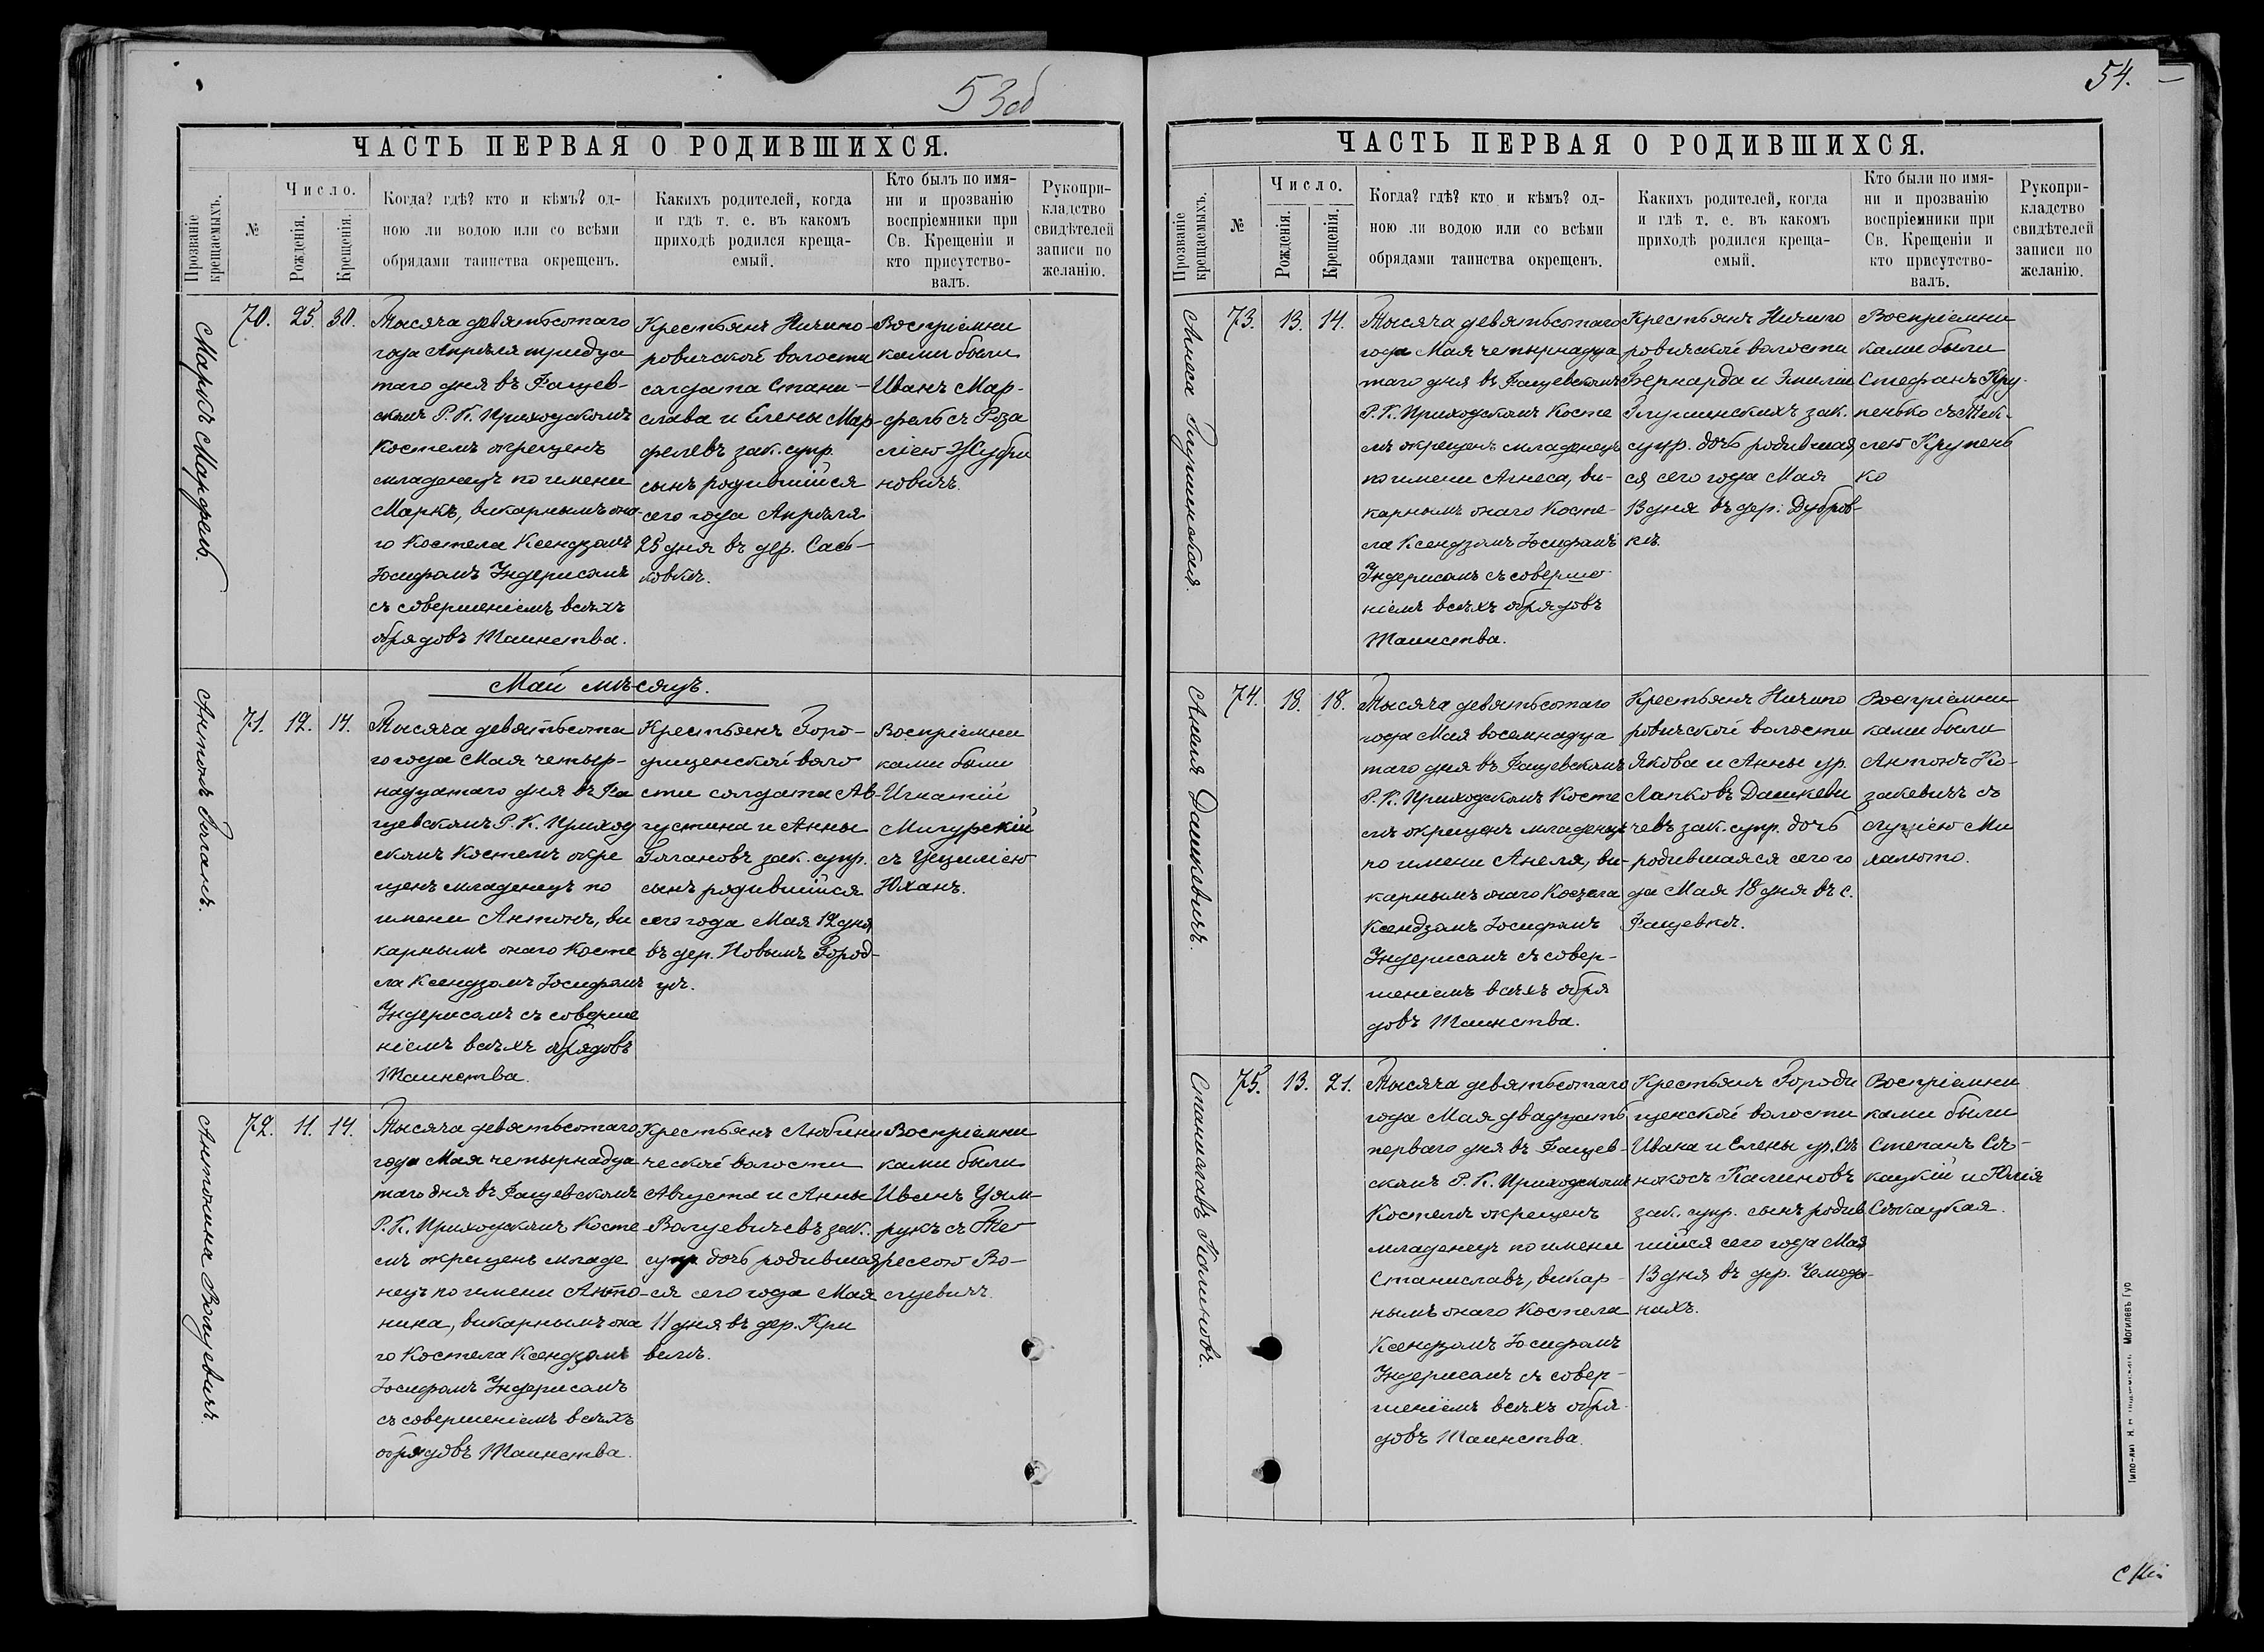 53об
ЧАСТЬ ПЕРВАЯ О РОДИВШИХСЯ.
Прозваніе крещаемыхъ.
№
Число.
Рожденія.
Крещенія.
Когда? гдѣ? кто и кѣмъ? од-
ною ли водою или со всѣми
обрядами таинства окрещенъ.
Какихъ родителей, когда
и гдѣ т. е. въ какомъ
приходѣ родился креща-
емый.
Кто былъ по имя-
ни и прозванію
воспріемники при
Св. Крещеніи и
кто присутство-
валъ.
Рукопри-
кладство
свидѣтелей
записи по
желанію.
Маркъ Марфель.
70.
25.
30.
Тысяча девятьсотаго
года Апрѣля тридца
таго дня въ Фащев-
скомъ Р. К. Приходскомъ
Костелѣ окрещенъ
младенецъ по имени
Маркъ, викарнымъ она
го Костела Ксендзомъ
Іосифомъ Эндерисомъ
съ совершеніемъ всѣхъ
обрядовъ Таинства.
Крестьянъ Ничипо-
ровичской волости
солдата Стани-
слава и Елены Мар-
фелевъ зак. супр.
сынъ родившійся
сего года Апрѣля
25 дня въ дер. Сась-
ковкѣ.
Воспріемни
ками были
Иванъ Мар-
фель съ Роза
ліею Жуби
новичъ.
Май мѣсяцъ.
Антонъ Гаганъ.
71.
12.
14.
Тысяча девятьсота
го года Мая четыр-
надцатаго дня въ Фа
щевскомъ Р. К. Приход
скомъ Костелѣ окре
щенъ младенецъ по
имени Антонъ, ви
карнымъ онаго Косте
ла Ксендзомъ Іосифомъ
Эндерисомъ съ соверше
ніемъ всѣхъ обрядовъ
Таинства.
Крестьянъ Горо-
дищенской воло
сти солдата Ав-
густина и Анны
Гагановъ зак. супр.
сынъ родившійся
сего года Мая 12 дня
въ дер. Новымъ Город-
цѣ.
Воспріемни
ками были
Игнатій
Мигурскій
съ Цециліею
Юханъ.
Антонина Волуевичъ.
72.
11.
14.
Тысяча девятьсотаго
года Мая четырнадца
таго дня въ Фащевскомъ
Р. К. Приходскомъ Косте
лѣ окрещенъ младе
нецъ по имени Анто-
нина, викарнымъ она
го Костела Ксендзомъ
Іосифомъ Эндерисомъ
съ совершеніемъ всѣхъ
обрядовъ Таинства.
Крестьянъ Любини
ческой волости
Августа и Анны
Волуевичевъ зак.
супр. дочь родившая
ся сего года Мая
11 дня въ дер. Кри
велѣ.
Воспріемни
ками были
Иванъ Цим-
рукъ съ Те-
ресою Во-
луевичъ.
54.
ЧАСТЬ ПЕРВАЯ О РОДИВШИХСЯ.
Прозваніе крещаемыхъ.
№
Число.
Рожденія.
Крещенія.
Когда? гдѣ? кто и кѣмъ? од-
ною ли водою или со всѣми
обрядами таинства окрещенъ.
Какихъ родителей, когда
и гдѣ т. е. въ какомъ
приходѣ родился креща-
емый.
Кто были по имя-
ни и прозванію
воспріемники при
Св. Крещеніи и
кто присутство-
валъ.
Рукопри-
кладство
свидѣтелей
записи по
желанію.
Агнеса Глушинская.
73.
13.
14.
Тысяча девятьсотаго
года Мая четырнадца
таго дня въ Фащевскомъ
Р. К. Приходскомъ Косте
лѣ окрещенъ младенецъ
по имени Агнеса, ви-
карнымъ онаго Косте-
ла Ксендзомъ Іосифомъ
Эндерисомъ съ соверше
ніемъ всѣхъ обрядовъ
Таинства.
Крестьянъ Ничипо
ровичской волости
Бернарда и Эмиліи
Глушинскихъ зак.
супр. дочь родившая
ся сего года Мая
13 дня въ дер: Дубров-
кѣ.
Воспріемни
ками были
Стефанъ Кру-
пенько съ Тек-
лею Крупень
ко
Анеля Дашкевичъ.
74.
18.
18.
Тысяча девятьсотаго
года Мая восемнадца
таго дня въ Фащевскомъ
Р. К. Приходскомъ Косте
лѣ окрещенъ младенецъ
по имени Анеля, ви-
карнымъ онаго Костела
Ксендзомъ Іосифомъ
Эндерисомъ съ совер-
шеніемъ всѣхъ обря
довъ Таинства.
Крестьянъ Ничипо
ровичской волости
Якова и Анны ур.
Лапковъ Дашкеви
чевъ зак. супр. дочь
родившаяся сего го
да Мая 18 дня въ с.
Фащевкѣ.
Воспріемни
ками были
Антонъ Ко-
закевичъ съ
Луціею Ми
лалюто.
Станиславъ Калиновъ.
75.
13.
21.
Тысяча девятьсотаго
года Мая двадцать
перваго дня въ Фащев-
скомъ Р. К. Приходскомъ
Костелѣ окрещенъ
младенецъ по имени
Станиславъ, викар-
нымъ онаго Костела
Ксендзомъ Іосифомъ
Эндерисомъ съ совер-
шеніемъ всѣхъ обря-
довъ Таинства.
Крестьянъ Городи
щенской волости
Ивана и Елены ур. Сѣ
нокосъ Калиновъ
зак. супр. сынъ родив
шійся сего года Мая
13 дня въ дер. Чемода-
нахъ.
Воспріемни
ками были
Степанъ Сѣ-
кацкій и Юлія
Сѣкацкая.
Могилевъ Губ